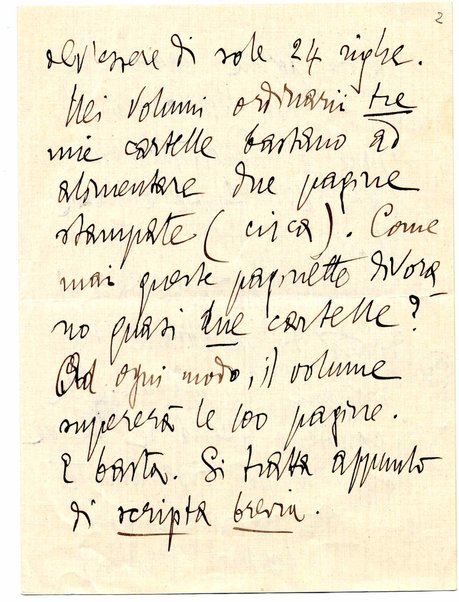 2
dev'essere di sole 24 righe.
Nei volumi ordinarii tre
mie cartelle bastano ad
alimentare due pagine
stampate (circa). Come
mai queste paginette divora
no quasi due cartelle?
Ad ogni modo, il volume
supererà le 100 pagine.
E basta. Si tratta appunto
di scripta brevia.